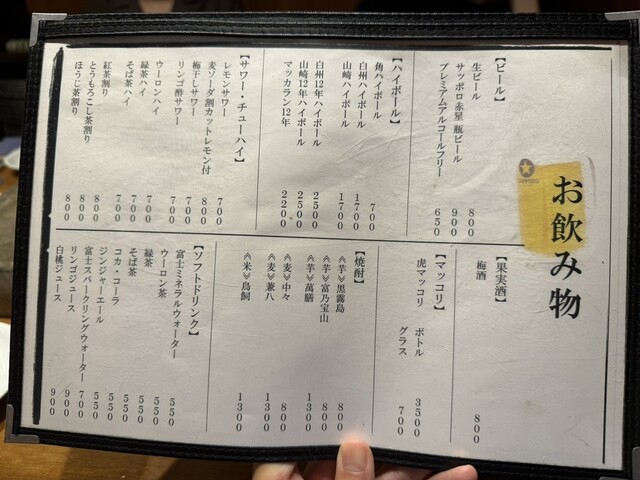 お飲み物
【ビール】
生ビール 800
サッポロ赤星 瓶ビール 900
プレミアムアルコールフリー 650
【ハイボール】
角ハイボール 700
白州ハイボール 1700
山崎ハイボール 1700
白州12年ハイボール 2500
山崎12年ハイボール 2500
マッカラン12年 2200
【サワー・チューハイ】
レモンサワー 700
麦ソーダ割カットレモン付 800
梅干しサワー 700
リンゴ酢サワー 700
ウーロンハイ 700
緑茶ハイ 700
そば茶ハイ 700
紅茶割り 800
とうもろこし茶割り 800
ほうじ茶割り 800
【果実酒】
梅酒 800
【マッコリ】
虎マッコリ ボトル 3500
グラス 700
【焼酎】
《芋》黒霧島 800
《芋》富乃宝山 800
《芋》萬膳 1300
《麦》中々 800
《麦》兼八 1300
《米》鳥飼 1300
【ソフトドリンク】
富士ミネラルウォーター 550
ウーロン茶 550
緑茶 550
そば茶 550
コカ・コーラ 550
ジンジャーエール 550
富士スパークリングウォーター 700
リンゴジュース 900
白桃ジュース 900